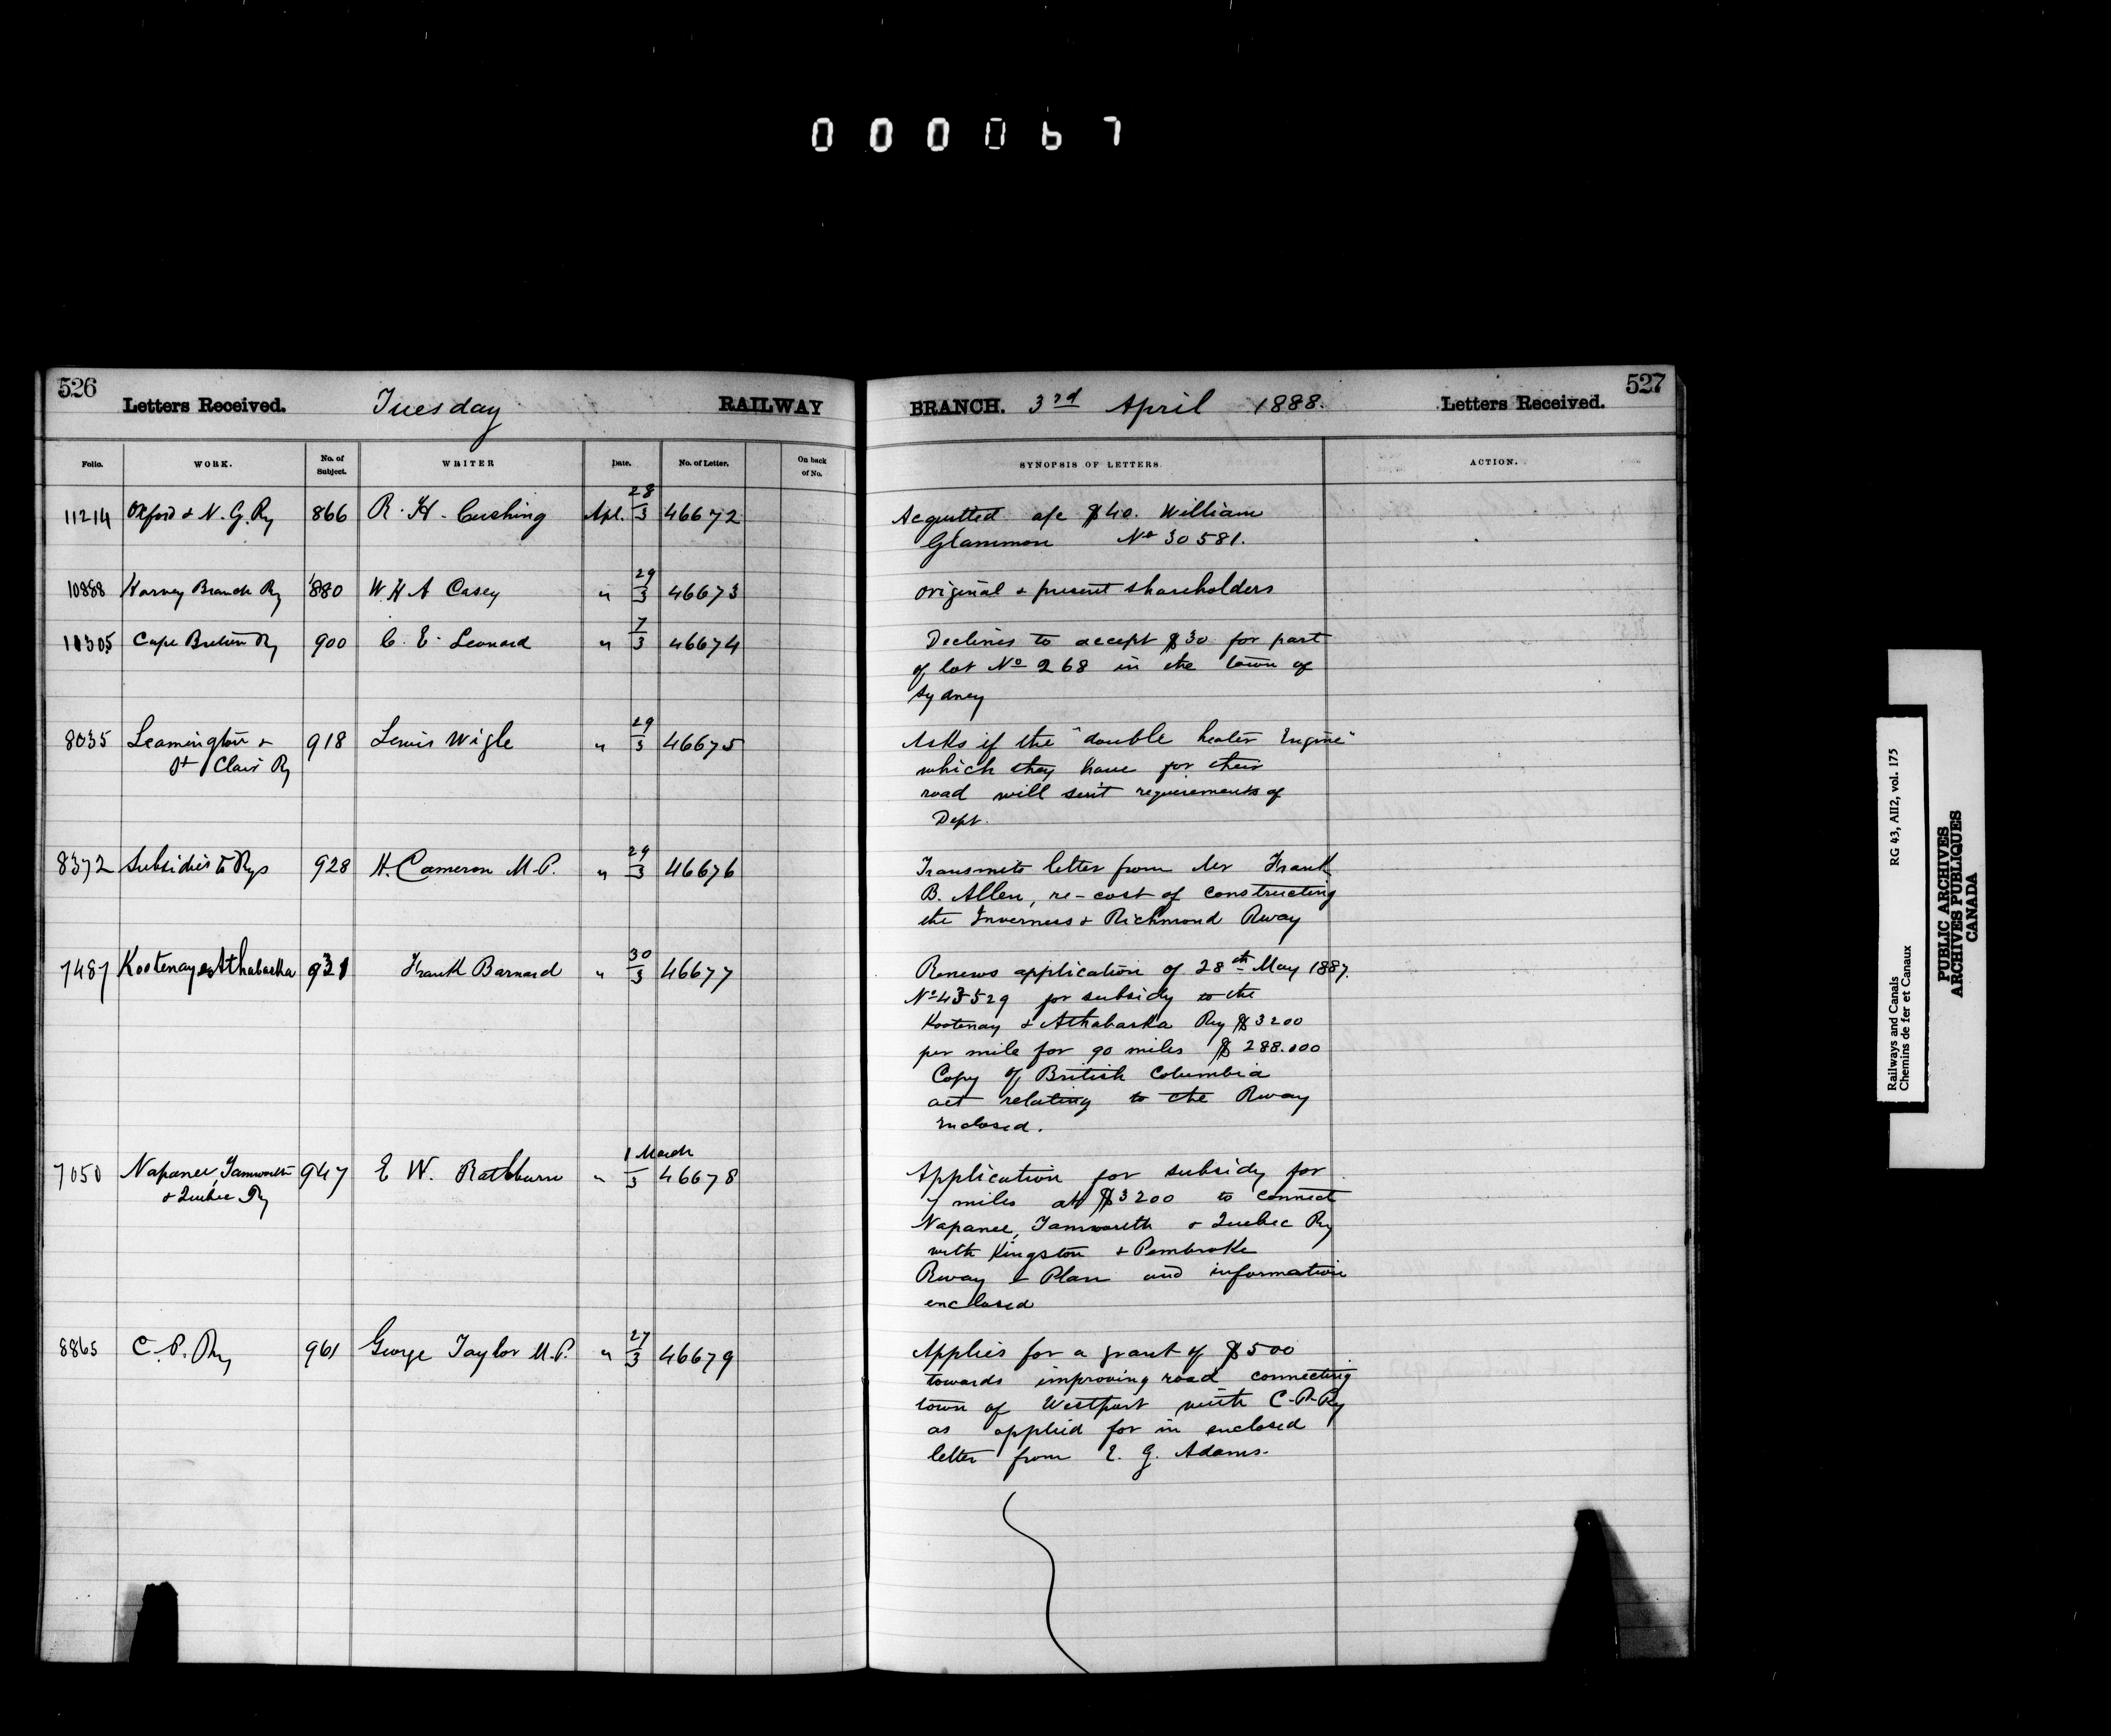 0 0 0 0 6 7
526
Letters Received.
Tuesday
RAILWAY
BRANCH. 3rd April 1888.
Letters Received.
527
Folio. WORK. No. of Subject. WRITER Date. No. of Letter. On back of No. SYNOPSIS OF LETTERS. ACTION.
11214 Oxford & N. G. Ry 866 R. H. Cushing Apl. 28/3 46672 Acquitted a/c $40. William
No 30581.
10888 Harvey Branch Ry 880 W. H A Casey " 29/3 46673 original & present shareholders
10305 Cape Breton Ry 900 C. E. Leonard " 7/3 46674 Declines to accept $30 for part
of lot No 268 in the town of
Sydney
8035 Leamington & 918 Lewis Wigle " 29/3 46675 Asks if the "double heater Engine"
St Clair Ry which they have for their
road will suit requirements of
Dept.
8372 Subsidies to Rys 928 H. Cameron M.P. " 29/3 46676 Transmits letter from Mr Frank
B. Allen, re-cost of constructing
the Inverness & Richmond Rway
7487 Kootenay & Athabaska 931 Frank Barnard " 30/3 46677 Renews application of 28th May 1887.
No 43529 for subsidy to the
Kootenay & Athabaska Ry $3200
per mile for 90 miles $288.000
Copy of British Columbia
act relating to the Rway
enclosed.
7050 Napanee, Tamworth 947 E W. Rathburn " 1 March/3 46678 Application for subsidy for
& Quebec Ry 7 miles at $3200 to connect
Napanee, Tamworth & Quebec Ry
with Kingston & Pembroke
Rway & Plan and information
enclosed
8865 C. P. Ry 961 George Taylor M.P. " 27/3 46679 Applies for a grant of $500
towards improving road connecting
town of Westport with C.P.Ry
as applied for in enclosed
letter from E. G. Adams.
Railways and Canals RG 43, AII2, vol. 175
Chemins de fer et Canaux
PUBLIC ARCHIVES
ARCHIVES PUBLIQUES
CANADA